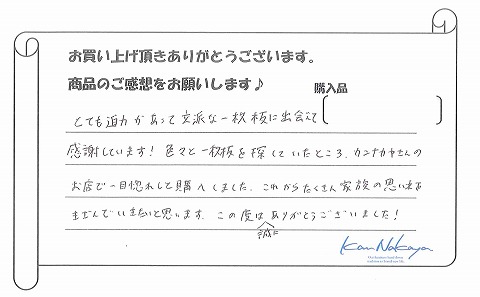 お買い上げ頂きありがとうございます。
商品のご感想をお願いします♪
購入品
とても迫力があって立派な一枚板に出会えて
感謝しています！色々と一枚板を探していたところ、カンナカヤさんの
お店で一目惚れして購入しました。これからたくさん家族の思い出を
きざんでいきたいと思います。この度は誠にありがとうございました！
Kan Nakaya